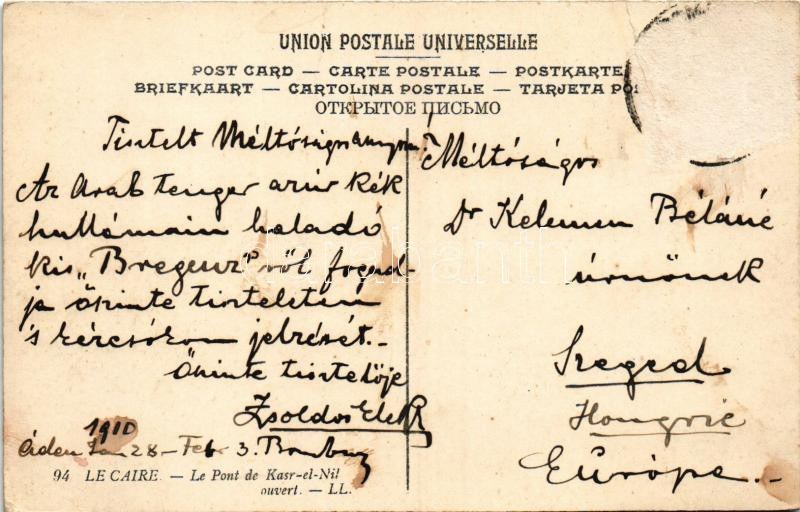 UNION POSTALE UNIVERSELLE
POST CARD — CARTE POSTALE — POSTKARTE
BRIEFKAART — CARTOLINA POSTALE — TARJETA PO
ОТКРЫТОЕ ПИСЬМО
Tisztelt Méltóságos
Az Arab tenger azúr kék
hullámain haladó
kis „Bregenz" ről fogad-
ja őszinte tiszteletem
s kézcsókom jelzését.-
Őszinte tisztelője
Zsoldos Elek
1910
Aden Jan 28 - Feb 3. Bombay
Méltóságos
Dr Kelemen Béláné
úrnőnek
Szeged
Hongrie
Európa.-
94 LE CAIRE. — Le Pont de Kasr-el-Nil
ouvert. — LL.
darabanth